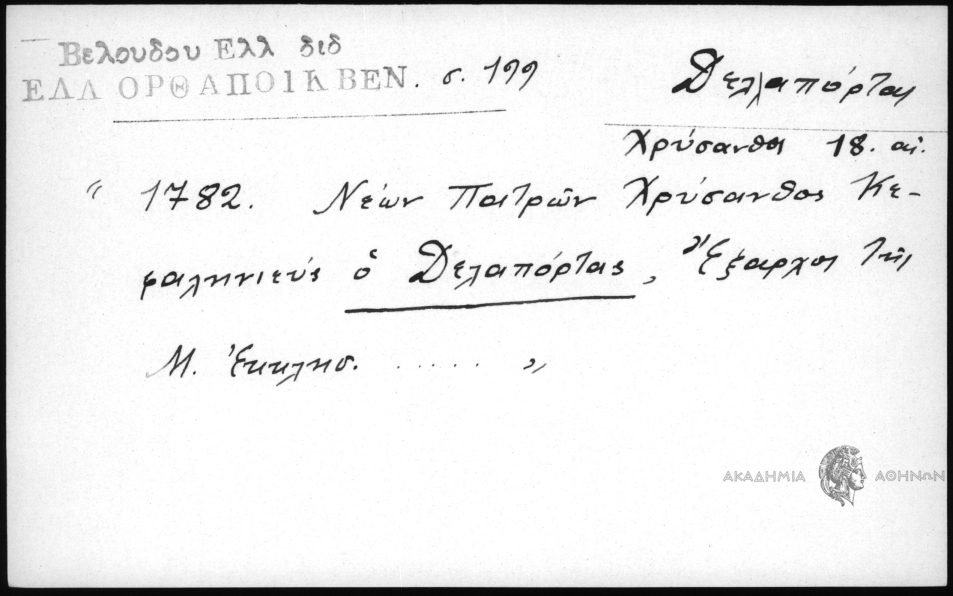 Βελουδου Ελλ διδ
ΕΛΛ ΟΡΘ ΑΠΟΙΚ ΒΕΝ. σ. 199
Δελλαπόρτας
Χρύσανθος 18. αἰ.
" 1782. Νέων Πατρῶν Χρύσανθος Κε-
φαληνιεύς ὁ Δελαπόρτας, Ἔξαρχος τῆς
Μ. Ἐκκλησ. ..... "
ΑΚΑΔΗΜΙΑ ΑΘΗΝΩΝ